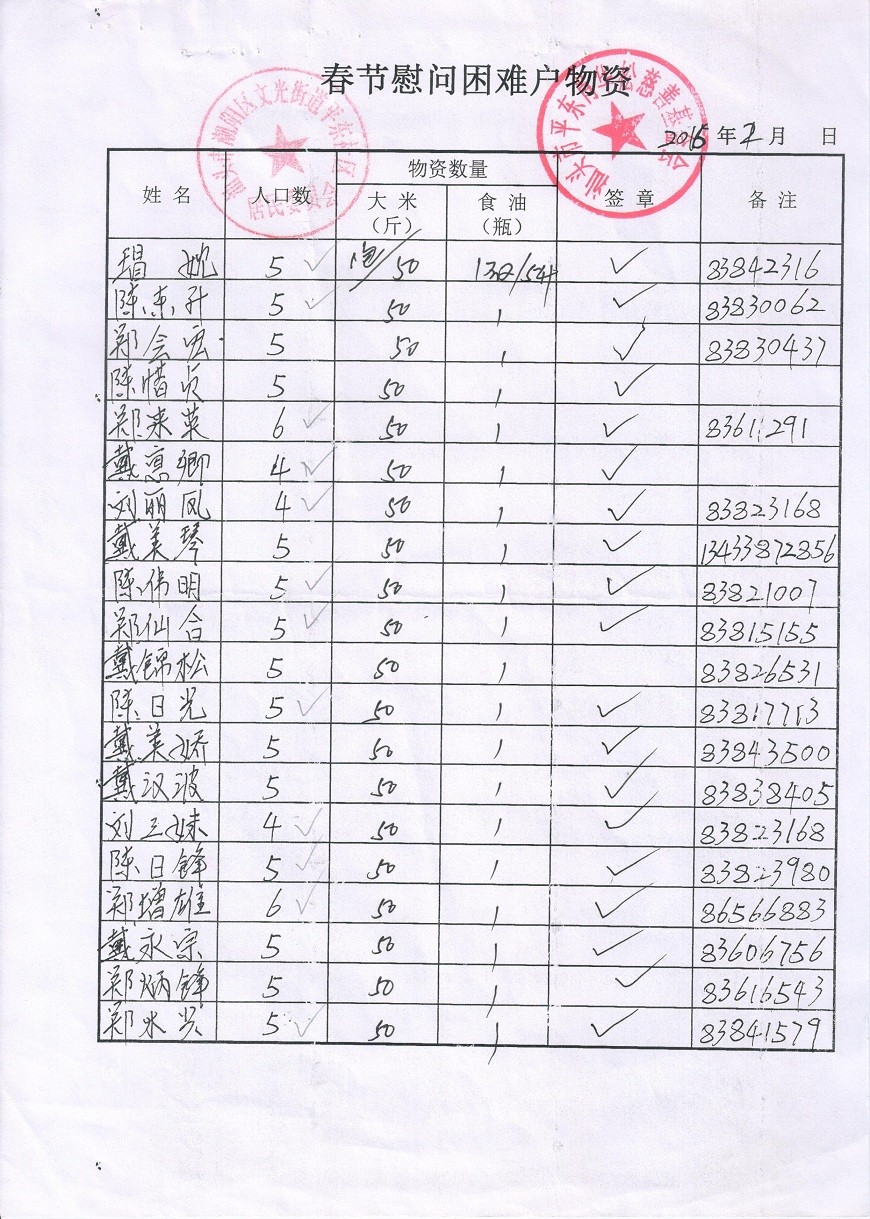 春节慰问困难户物资
汕头市潮阳区文光街道平东社区
居民委员会
慈善基金会
2015年2月 日
姓名 人口数 物资数量 签章 备注
大米（斤） 食油（瓶）
5 ✓ 50 ✓ 83842316
陈东升 5 ✓ 50 1 ✓ 83830062
郑会宏 5 50 1 ✓ 83830437
陈惜贞 5 50 1 ✓
郑来英 6 ✓ 50 1 ✓ 83611291
戴惠卿 4 ✓ 50 1 ✓
刘丽凤 4 ✓ 50 1 ✓ 83823168
戴美琴 5 50 1 ✓ 13433872856
陈伟明 5 ✓ 50 1 ✓ 83821007
郑仙合 5 ✓ 50 1 ✓ 83815155
戴锦松 5 50 1 83826531
陈日光 5 ✓ 50 1 ✓ 83817713
戴美娇 5 50 1 ✓ 83843500
戴汉波 5 50 1 ✓ 83838405
刘三妹 4 ✓ 50 1 ✓ 83823168
陈日锋 5 ✓ 50 1 ✓ 83823980
郑增雄 6 ✓ 50 1 ✓ 86566883
戴永宗 5 50 1 ✓ 83606756
郑炳锋 5 50 1 ✓ 83616543
郑水兴 5 ✓ 50 1 ✓ 83841579